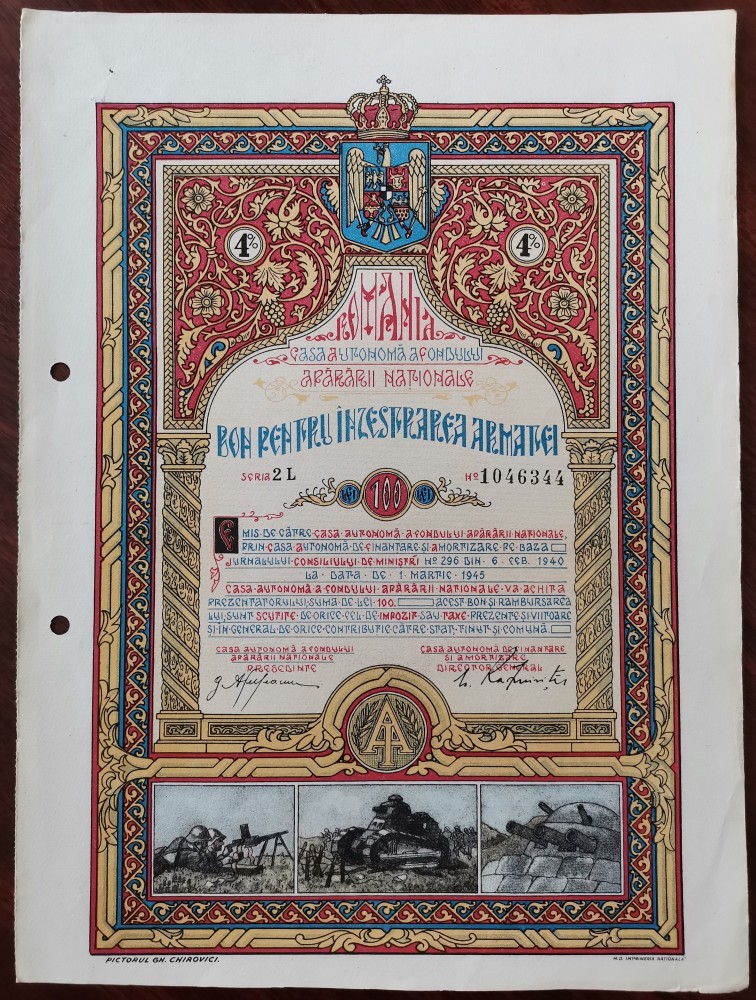 4%
4%
ROMÂNIA
CASA AUTONOMĂ A FONDULUI
APĂRĂRII NAȚIONALE
BON PENTRU ÎNZESTRAREA ARMATEI
SERIA 2 L
No 1046344
LEI 100 LEI
EMIS DE CĂTRE CASA AUTONOMĂ A FONDULUI APĂRĂRII NAȚIONALE,
PRIN CASA AUTONOMĂ DE FINANȚARE ȘI AMORTIZARE PE BAZA
JURNALULUI CONSILIULUI DE MINIȘTRI No 296 DIN 6 FEB. 1940
LA DATA DE 1 MARTIE 1945
CASA AUTONOMĂ A FONDULUI APĂRĂRII NAȚIONALE VA ACHITA
PREZENTATORULUI SUMA DE LEI 100. ACEST BON ȘI RAMBURSAREA
LUI, SUNT SCUTITE DE ORICE FEL DE IMPOZIT SAU TAXE PREZENTE ȘI VIITOARE
ȘI ÎN GENERAL DE ORICE CONTRIBUȚIE CĂTRE STAT, ȚINUT ȘI COMUNĂ
CASA AUTONOMĂ A FONDULUI
APĂRĂRII NAȚIONALE
PREȘEDINTE
CASA AUTONOMĂ DE FINANȚARE
ȘI AMORTIZARE
DIRECTOR GENERAL
AT
PICTORUL GH. CHIROVICI.
M.O. IMPRIMERIA NAȚIONALĂ